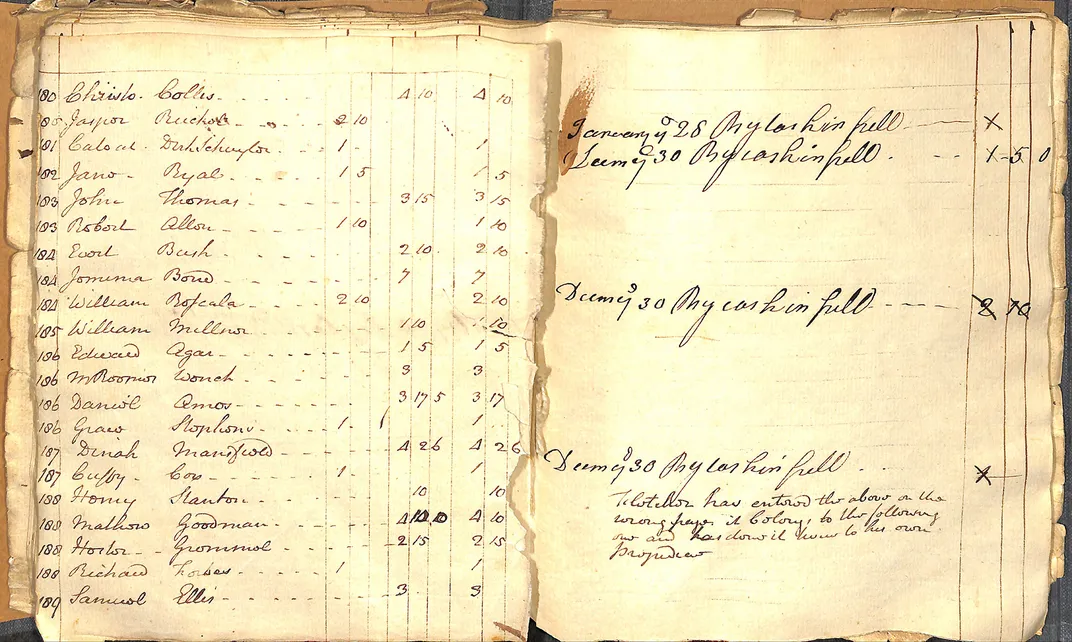 180 Christo. Collis 4 10 4 10
180 Jaspor 2 10
181 Dirk Schuylor 1 1
182 Jano Ryal 1 5 1 5
183 John Thomas 3 15 3 15
183 Robort Allon 1 10 1 10
184 Evort Bush 2 10 2 10
184 Jomima Bond 7 7
184 William 2 10 2 10
185 William Millnor 1 10 1 10
186 Edward Agar 1 5 1 5
186 3 3
186 Daniol Amos 3 17 5 3 17
186 Graco Stophons 1 1
187 Dinah Mansfiold 4 2 6 4 2 6
187 Cuffy Cox 1 1
188 Honry Stanton 10 10
188 Mathow Goodman 4 10 4 10
188 Hostor Grommol 2 15 2 15
188 Richard Forbes 1 1
189 Samuol Ellis 3 3
January ye 28 By cash in full
Decm ye 30 By cash in full 5 0
Decm ye 30 By cash in full 2 10
Decm ye 30 By cash in full
has entered the above on the
wrong page it belongs to the following
one and has don it to his own
Projudice